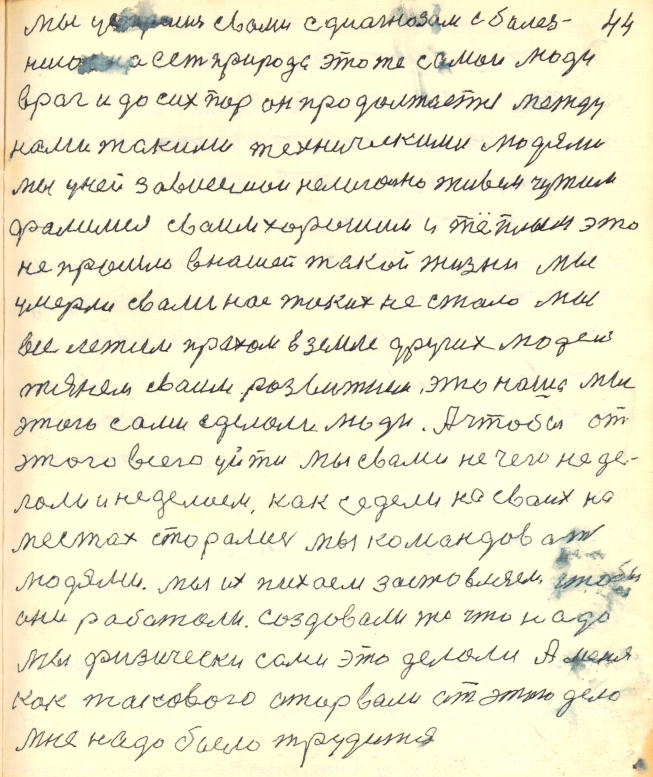 мы устроили свами сдиагнозам с болез- 44
нию на сет природа это же самои люди
враг и до сих пор он продолжается между
нами такими техническими людями
мы уней зависемои нелигално живем чужим
фалимся сваим хорошим и тёплым это
не прошло внашей такой жизни мы
умерли свами нас таких не стало мы
все лежим прахом в земле других людей
тянем сваим развитием, это наша мы
этого сами сделоли люди. А чтобы от
этого всего уйти мы свами не чего не де-
лоли и неделоем, как седели на сваих на
местах сторалися мы командоват
людями. мы их пихаем заставляем чтобы
они работоли. создовали то что надо
мы физически сами это делоли А меня
как такового оторвали от этого дело
мне надо было трудится